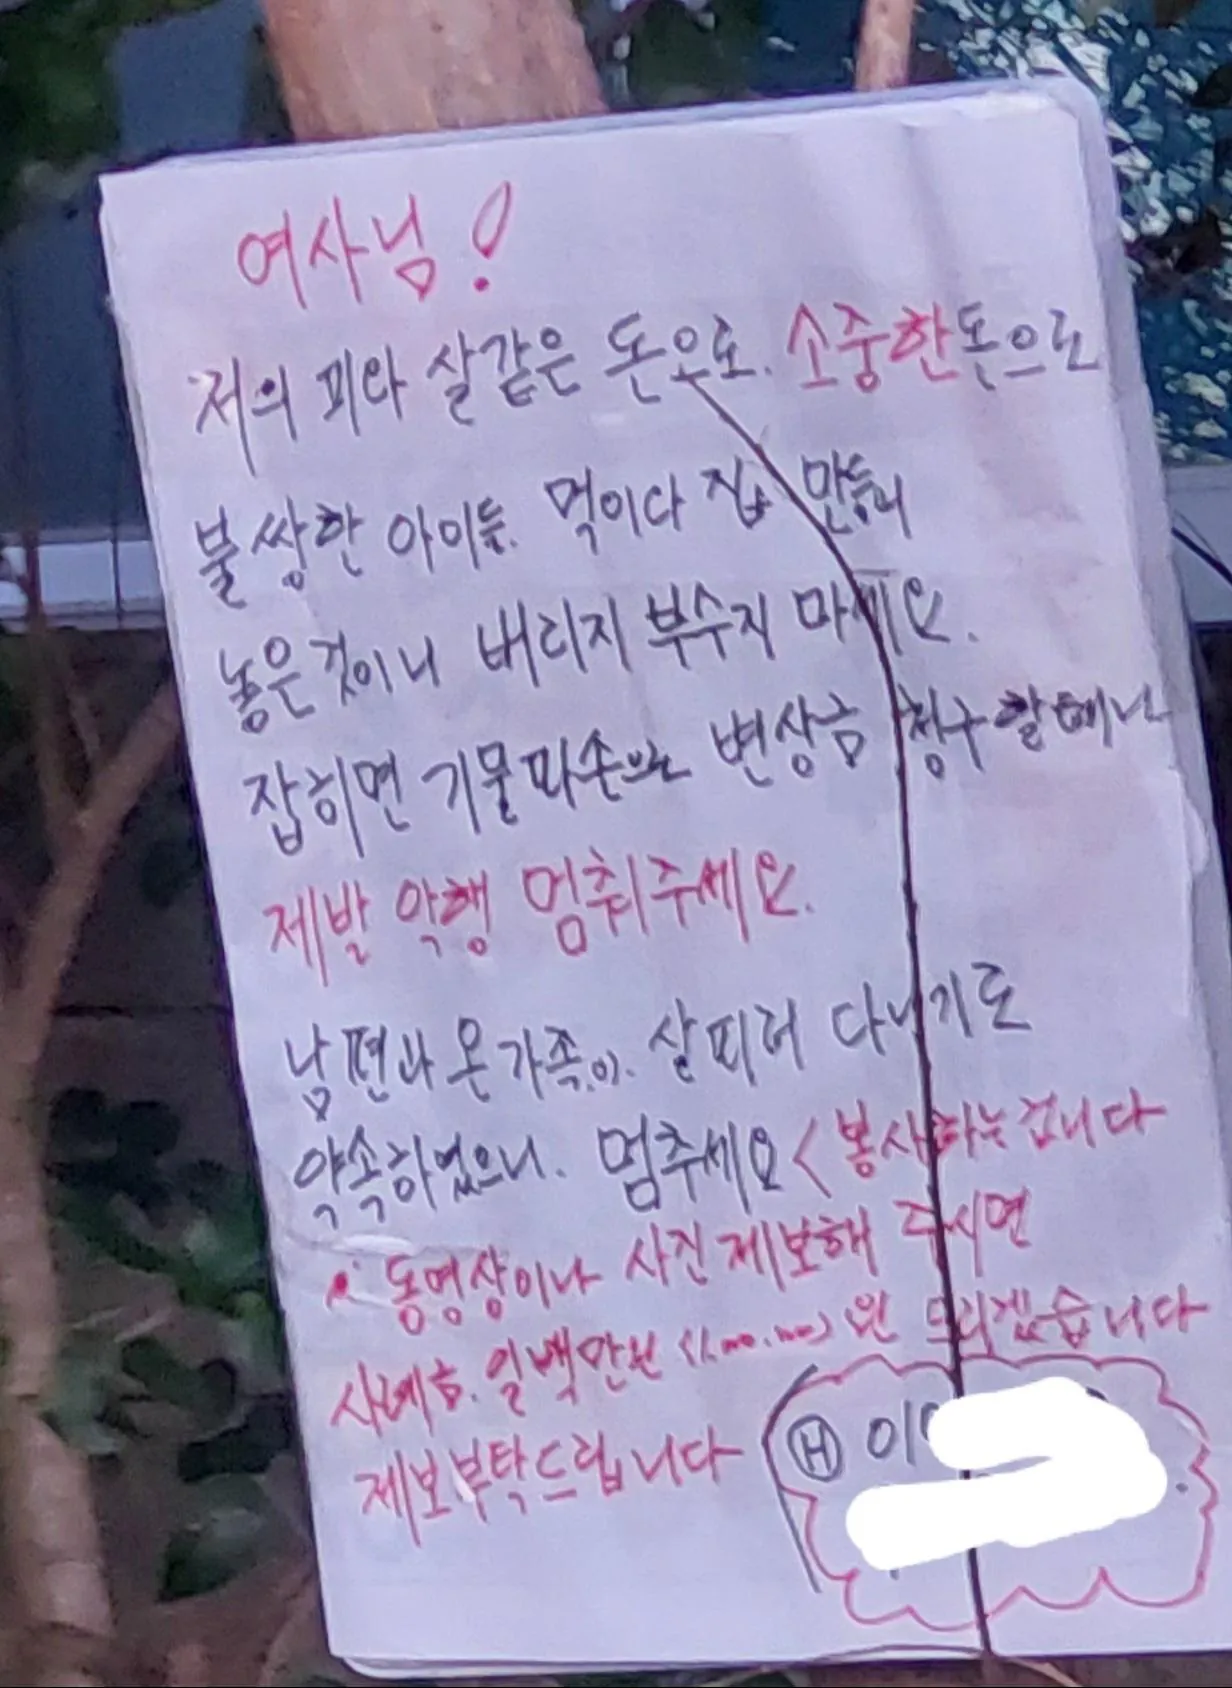 여사님!
저의 피라 살같은 돈으로. 소중한돈으로
불쌍한 아이들. 먹이다 집 만들러
놓은것이니 버리지 부수지 마세요.
잡히면 기물파손으로 변상금 청구할테니
제발 악행 멈춰주세요.
남편과 온가족이. 살피러 다니기로
약속하였으니. 멈추세요 < 봉사하는겁니다
동영상이나 사진 제보해 주시면
사례금. 일백만원 (1.000.000)원 드리겠습니다
제보부탁드립니다
H 이